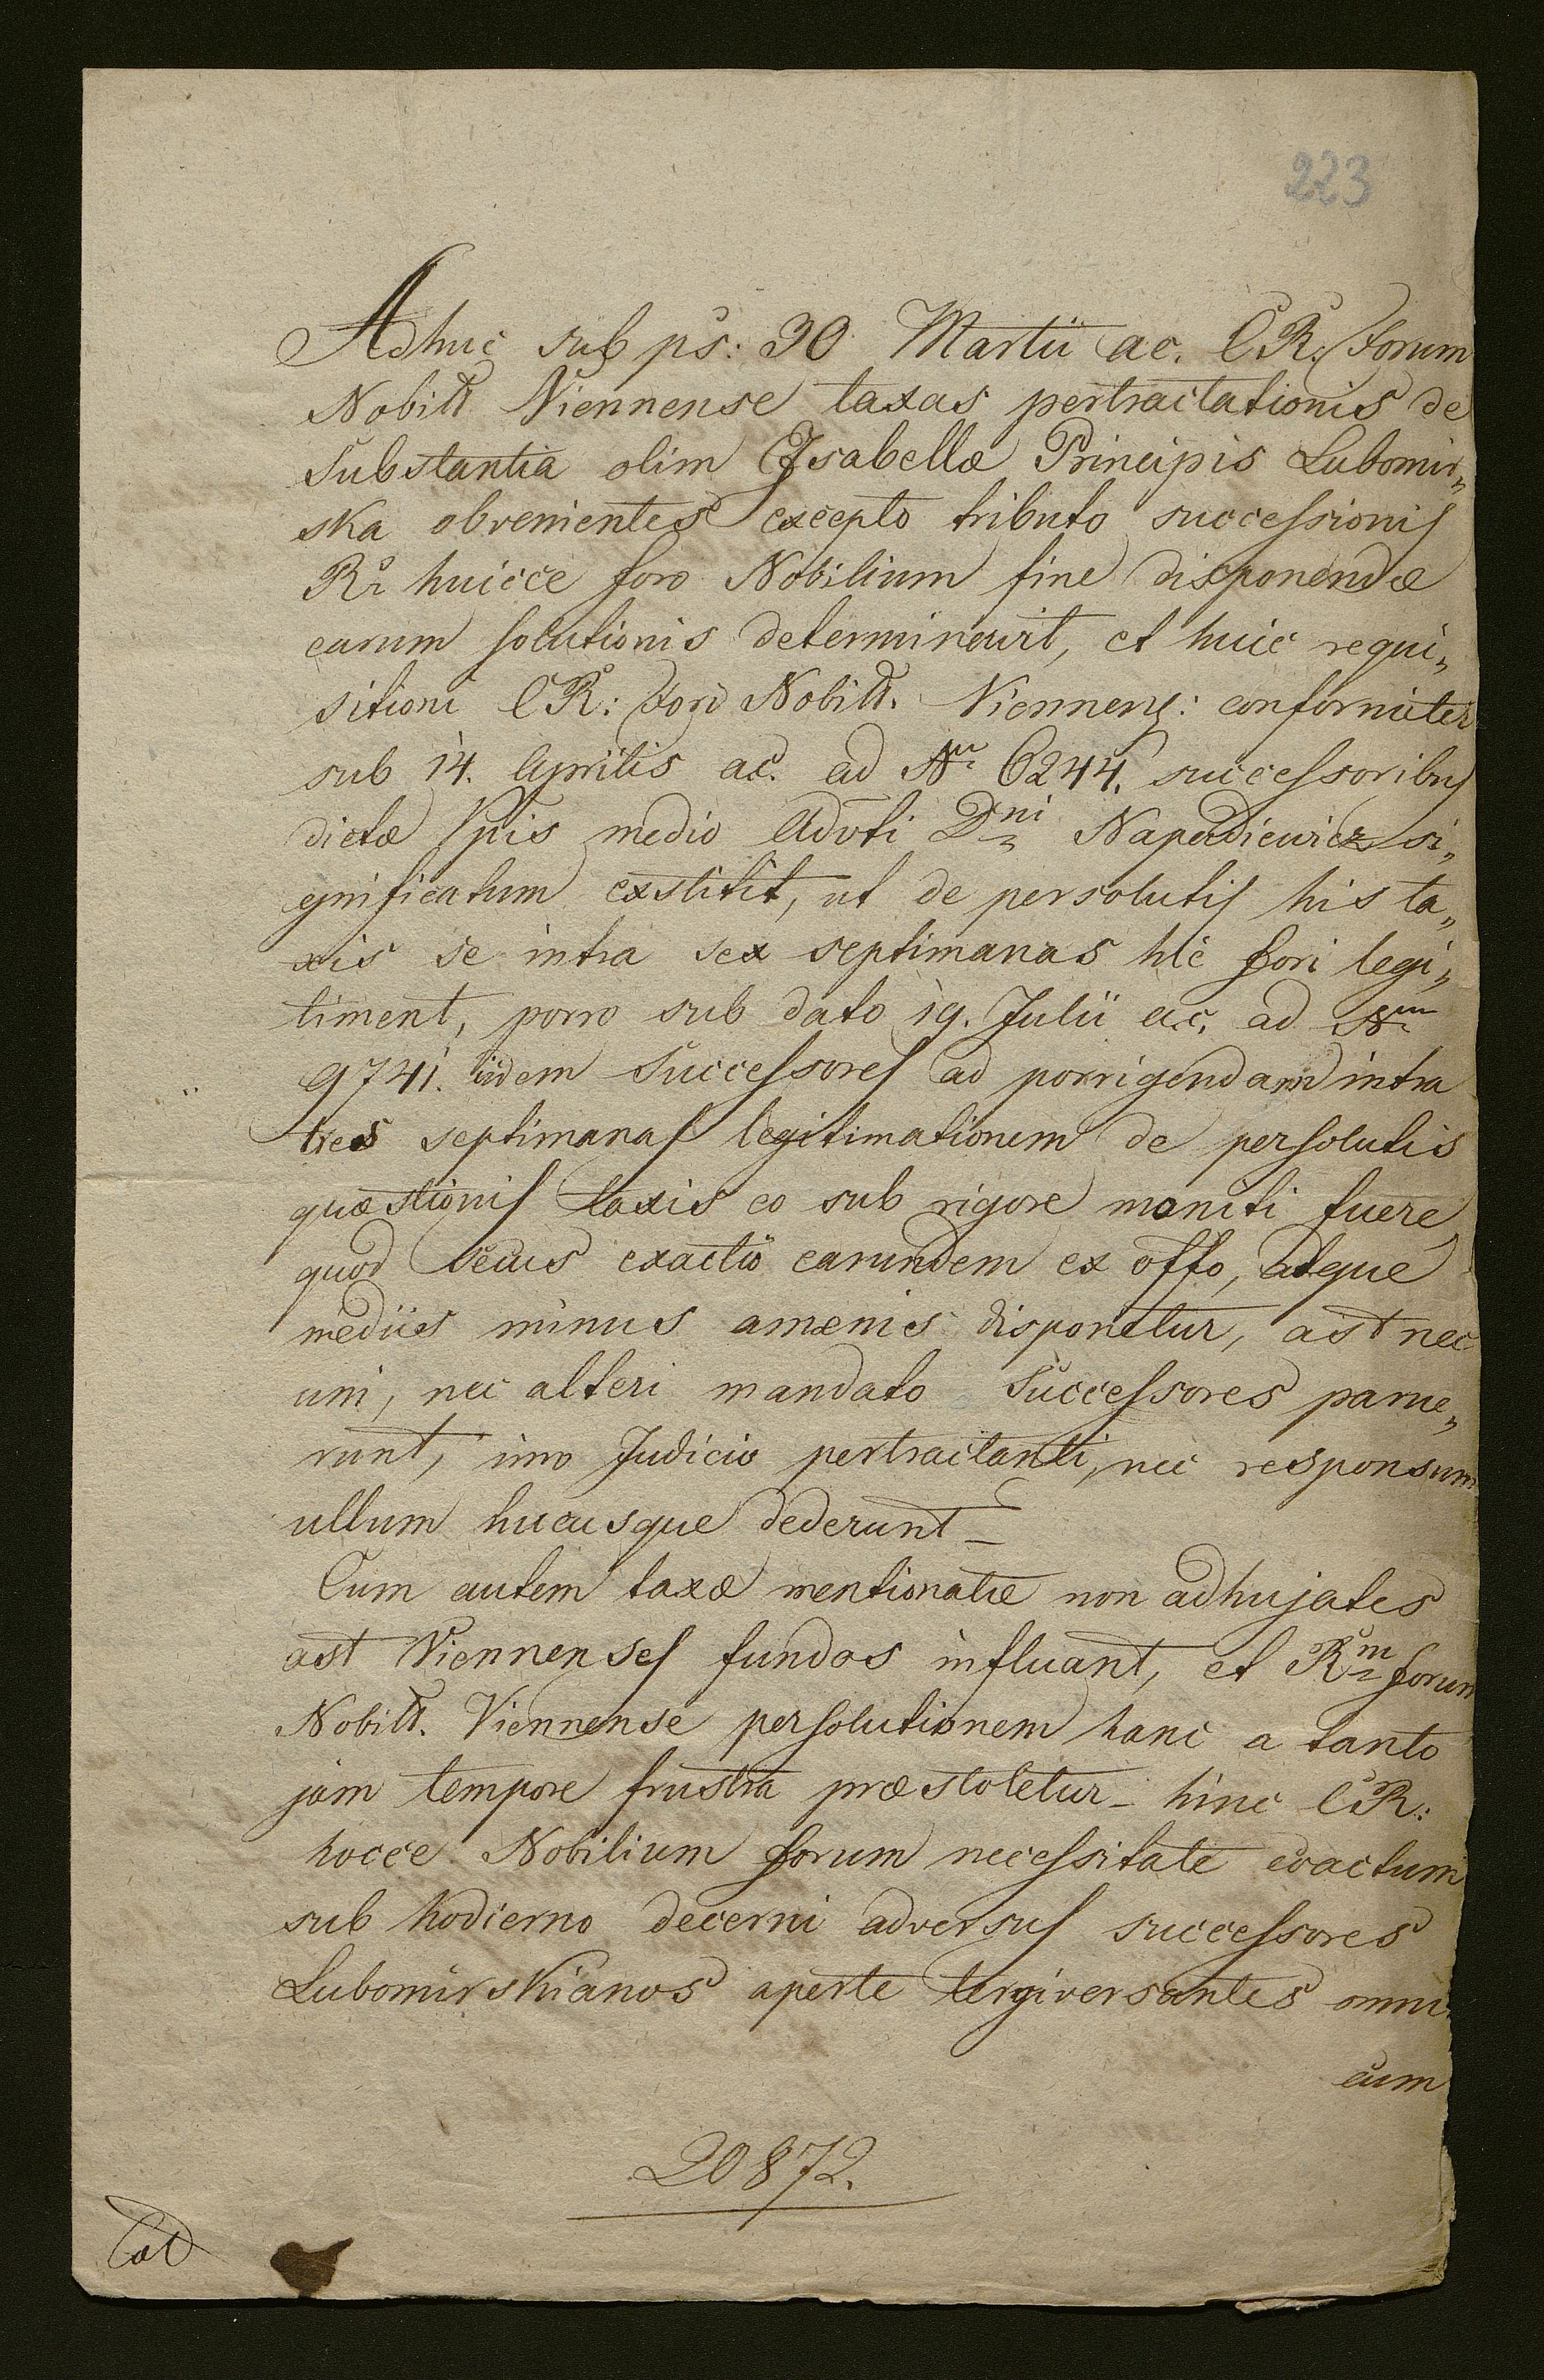 223
Adhuc sub ps: 30 Martii ac. C R: Forum
Nobilt Viennense taxas pertractationis de
Substantia olim Isabellæ Principis Lubomir„
ska obvenientes excepto tributo successionis
Ro huicce foro Nobilium fine disponendæ
earum solutionis determinavit, et huic requi„
sitioni C R: Fori Nobilt. Viennens: conformiter
sub 14. Aprilis ac. ad Nrum 6244. successoribus
dictæ Ppis medio Advti Dni Napadiewicz si„
gnificatum exstitit, ut de persolutis his ta„
xis se intra sex septimanas hic fori legi„
timent, porro sub dato 19. Julii ac. ad Nrum
9741. iidem Successores ad porrigendam intra
tres septimanas legitimationem de persolutis
quæstionis taxis eo sub rigore moniti fuere,
quod secus exactio earundem ex offo, atque
mediis minus amænis disponetur, ast nec
uni, nec alteri mandato Successores parue„
runt, imo Judicio pertractanti, nec responsum
ullum hucusque dederunt_
Cum autem taxæ mentionatæ non adhujates
ast Viennenses fundos influant, et Rm forum
Nobilt. Viennense persolutionem hanc a tanto
jam tempore frustra præstoletur_ hinc C R:
hocce Nobilium forum necessitate coactum
sub hodierno decerni adversus successores
Lubomirskianos aperte tergiversantes omni
cum
20872.